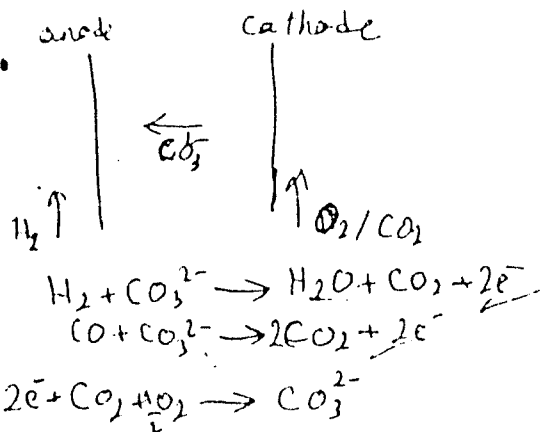 anode cathode
CO₃
H₂ O₂/CO₂
H₂ + CO₃²⁻ → H₂O + CO₂ + 2e⁻
CO + CO₃²⁻ → 2CO₂ + 2e⁻
2e⁻ + CO₂ + ½O₂ → CO₃²⁻